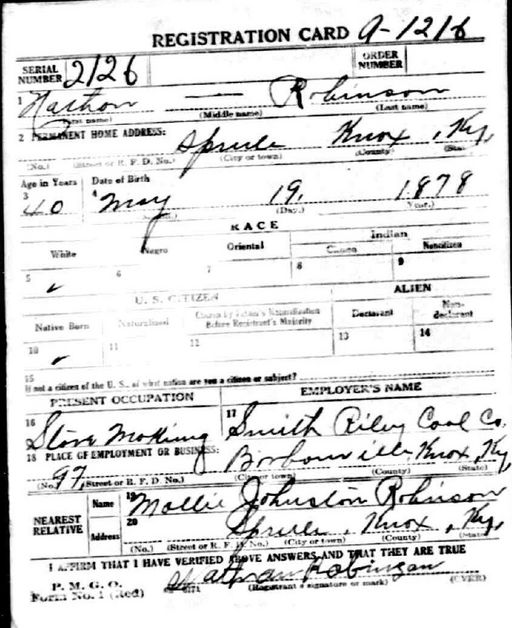 REGISTRATION CARD A-1216
SERIAL NUMBER 2126 ORDER NUMBER
1 Nathan — Robinson
(First name) (Middle name) (Last name)
2 PERMANENT HOME ADDRESS: Sprule Knox, Ky,
(No.) (Street or R. F. D. No.) (City or town) (County) (State)
Age in Years Date of Birth
3 40 4 May 19, 1878
(Day.) Year.)
RACE
White Negro Oriental Indian
Citizen Noncitizen
5 ✓ 6 7 8 9
U. S. CITIZEN ALIEN
Native Born Naturalized Citizen by Father's Naturalization Before Registrant's Majority Declarant Non-declarant
10 ✓ 11 12 13 14
15
If not a citizen of the U. S., of what nation are you a citizen or subject?
PRESENT OCCUPATION EMPLOYER'S NAME
16 17
Smith Riley Coal Co.
18 PLACE OF EMPLOYMENT OR BUSINESS: Barbourville, Knox, Ky,
(No.) (Street or R. F. D. No.) (City or town) (County) (State)
NEAREST RELATIVE
Name 19 Mollie Johnston Robinson
Address 20 Sprule, Knox, Ky,
(No.) (Street or R. F. D. No.) (City or town) (County) (State)
I AFFIRM THAT I HAVE VERIFIED ABOVE ANSWERS AND THAT THEY ARE TRUE
P. M. G. O.
Form No. 1 (Red) Nathan Robinson
(Registrant's signature or mark) (OVER)